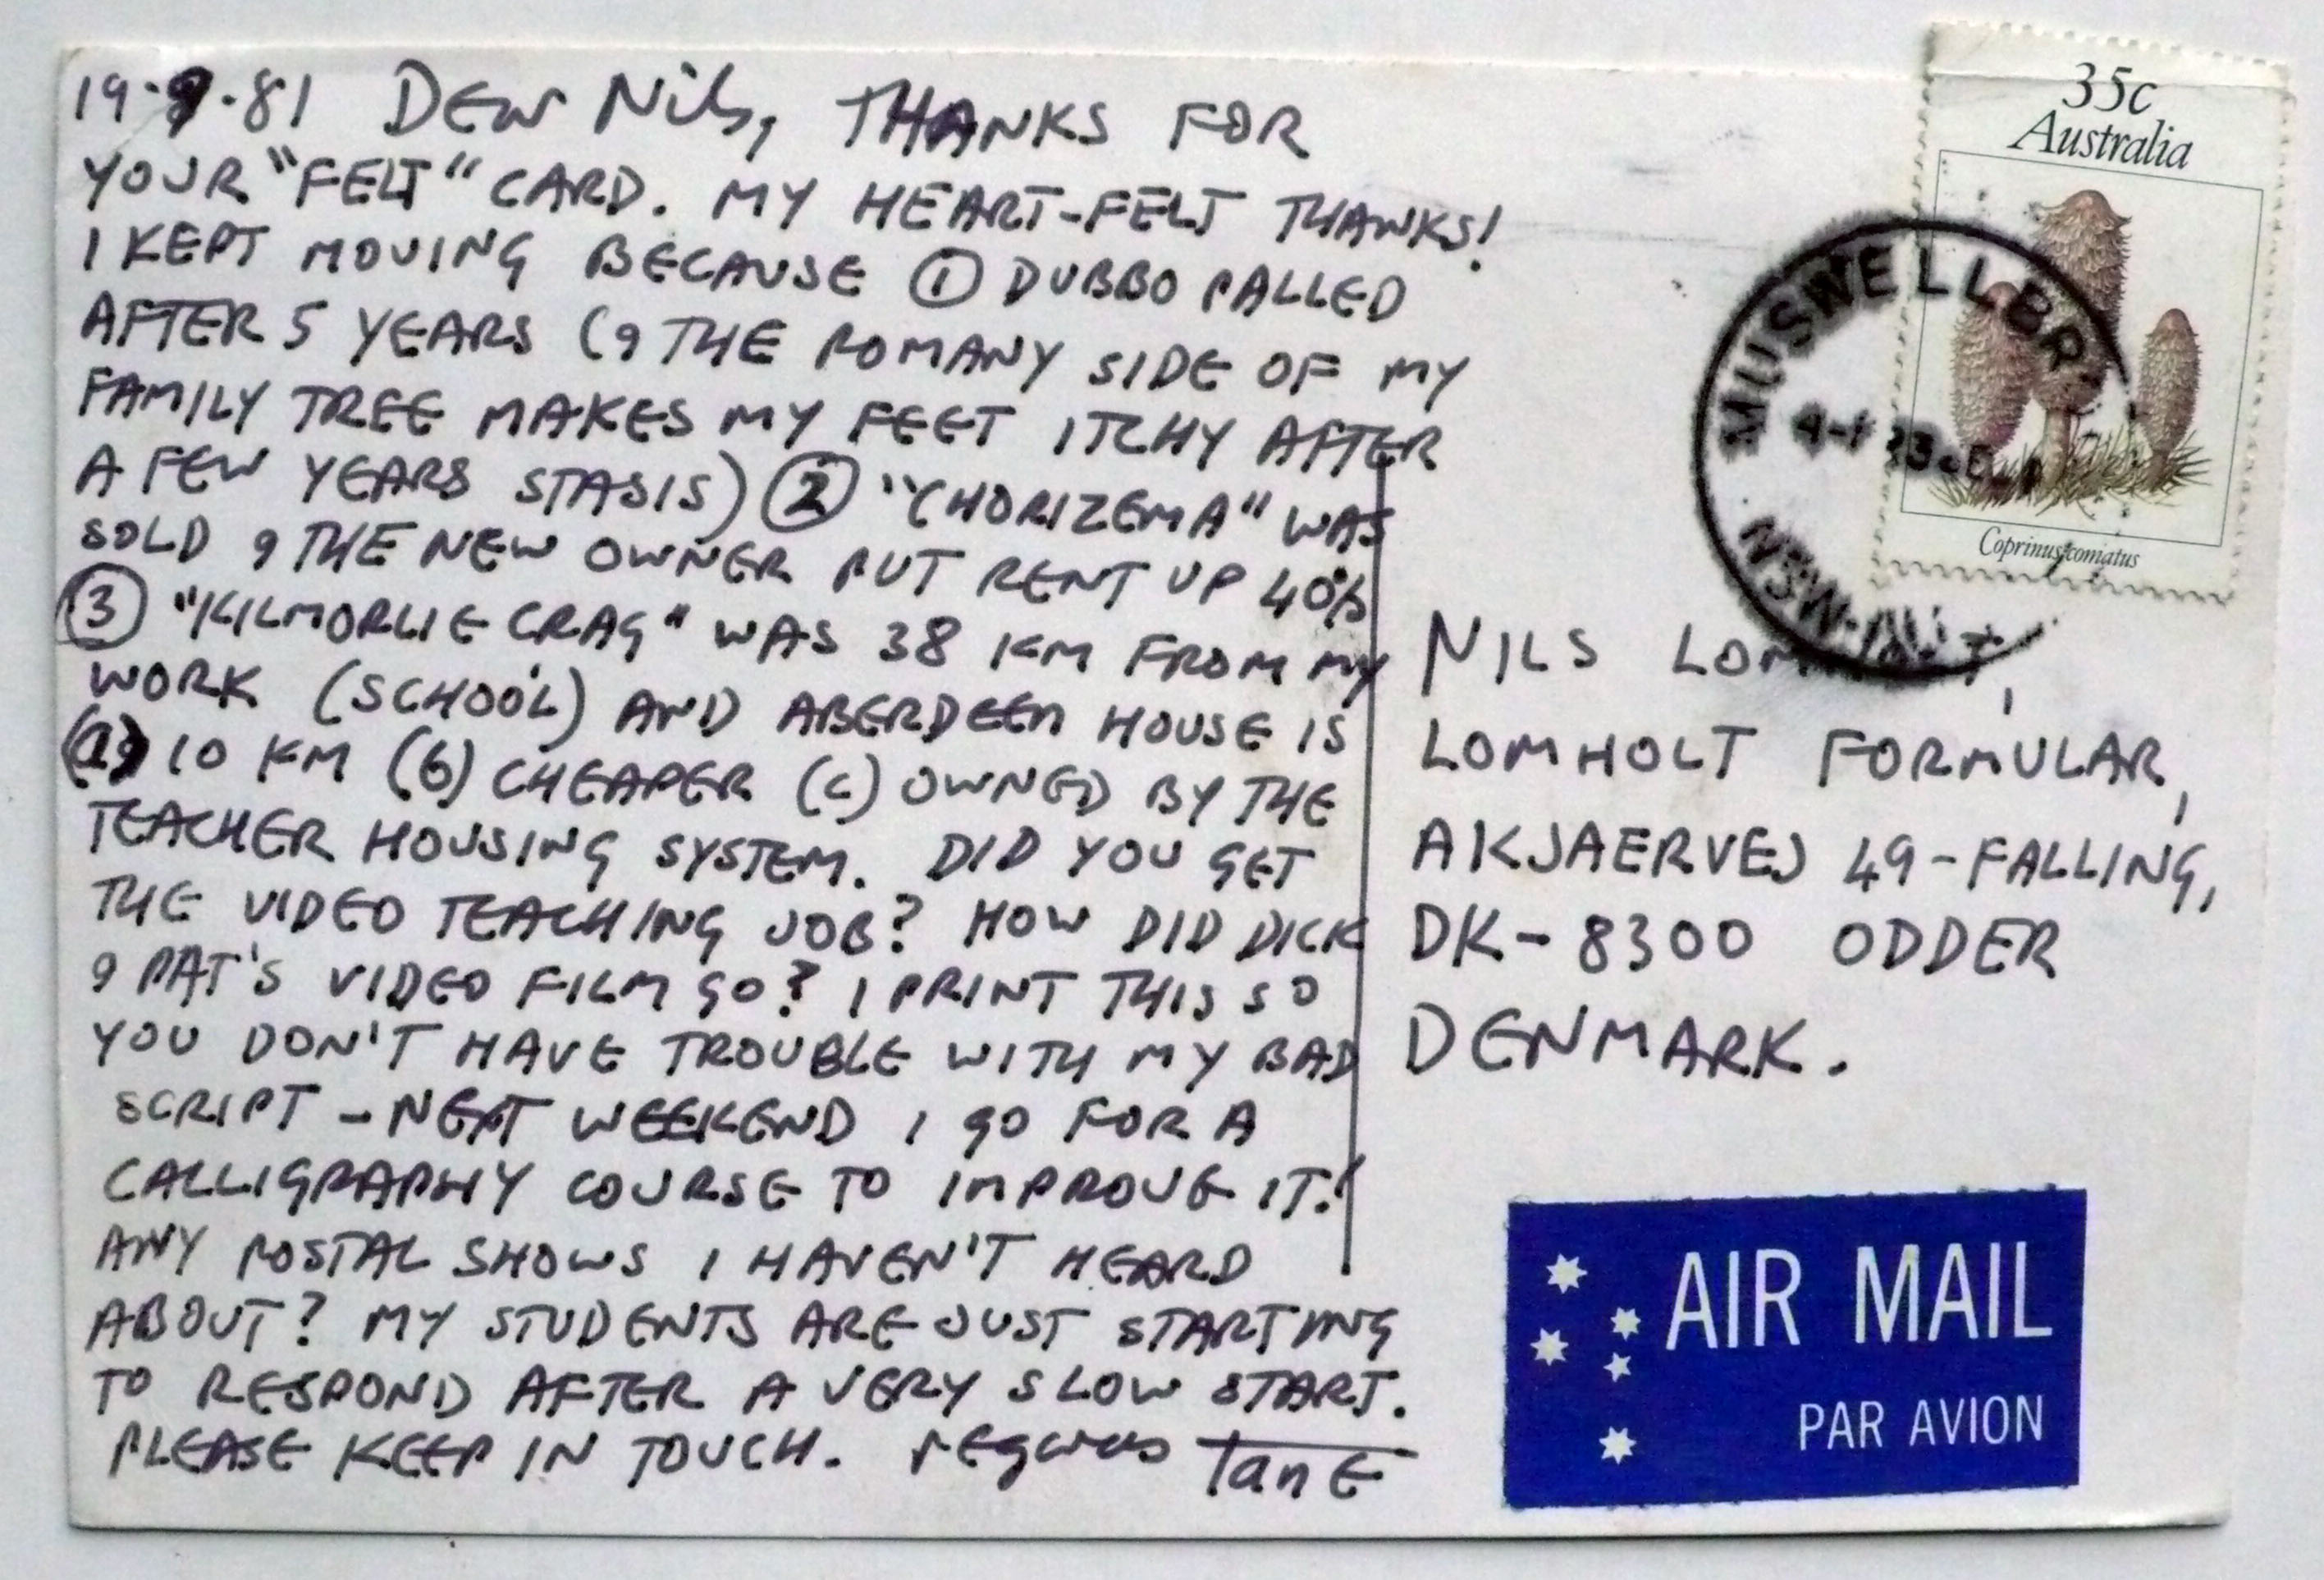 19-9-81 DEAR Nils, THANKS FOR
YOUR "FELT" CARD. MY HEART-FELT THANKS!
I KEPT MOVING BECAUSE ① DUBBO PALLED
AFTER 5 YEARS (& THE ROMANY SIDE OF MY
FAMILY TREE MAKES MY FEET ITCHY AFTER
A FEW YEARS STASIS) ② "CHORIZEMA" WAS
SOLD & THE NEW OWNER PUT RENT UP 40%
③ "KILMORLIE CRAG" WAS 38 KM FROM MY
WORK (SCHOOL) AND ABERDEEN HOUSE IS
(a) 10 KM (b) CHEAPER (c) OWNED BY THE
TEACHER HOUSING SYSTEM. DID YOU GET
THE VIDEO TEACHING JOB? HOW DID DICK
& PAT'S VIDEO FILM GO? I PRINT THIS SO
YOU DON'T HAVE TROUBLE WITH MY BAD
SCRIPT - NEXT WEEKEND I GO FOR A
CALLIGRAPHY COURSE TO IMPROVE IT!
ANY POSTAL SHOWS I HAVEN'T HEARD
ABOUT? MY STUDENTS ARE JUST STARTING
TO RESPOND AFTER A VERY SLOW START.
PLEASE KEEP IN TOUCH. regards TanE
35c
Australia
Coprinus comatus
MUSWELLBR
NSW-AUST
NILS
LOMHOLT FORMULAR,
AKJAERVEJ 49-FALLING,
DK-8300 ODDER
DENMARK.
AIR MAIL
PAR AVION